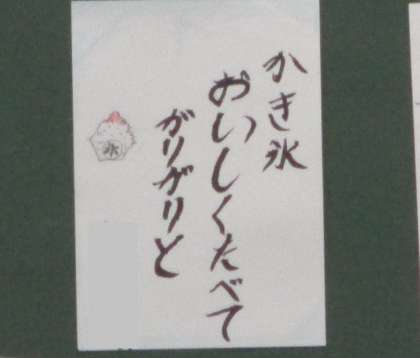 かき氷
おいしくたべて
ガリガリと
氷